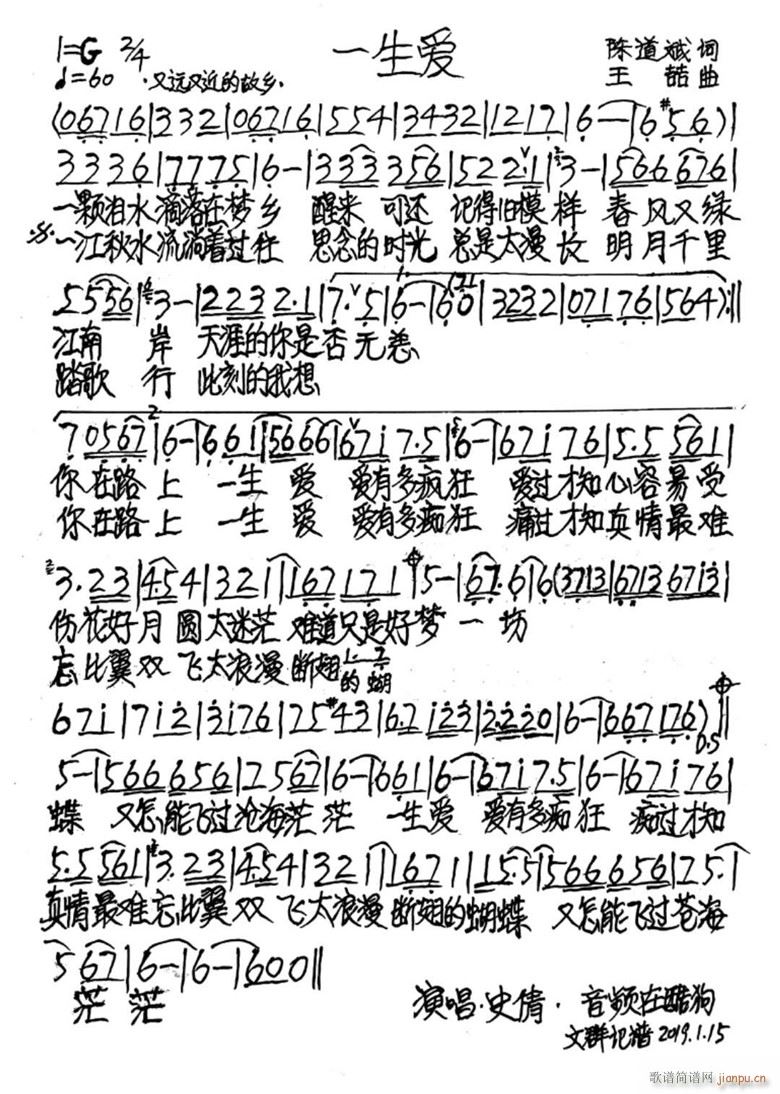 1=G 2/4 一生爱 陈道斌 词
♩=60 ·又远又近的故乡· 王喆 曲
(0671 6|332|0671 6|554|3432|1217|6-|6 #5 6)||
3336|7775|6-|333356|522·1|3-|566676|
一颗泪水滴落在梦乡 醒来 可还 记得旧模样 春风又绿
一江秋水流淌着过往 思念的时光 总是太漫长 明月千里
5556|3-|22322·1|7·5|6-|60|3232|07176|564):||
江南 岸 天涯的你是否无恙
踏歌 行 此刻的我想
70567|6-|661|5666|671 7·5|6-|67176|5·5561|
你在路上 一生 爱 爱有多疯狂 爱过才知心容易受
你在路上 一生 爱 爱有多痴狂 痛过才知真情最难
3·23|4·54|321|167171|5-|67·6|6(3713|67136713|
伤花好月圆太迷茫 难道只是好梦一场
忘比翼双飞太浪漫断翅
的蝴
671|712|3176|75#43|6·7123|2·220|6-|667176)||
0.5
5-|566656|7567|6-|661|6-|6717·5|6-|67176|
蝶 又怎能飞过沧海茫茫 一生爱 爱有多痴狂 痴过才知
5·5561|3·23|4·54|321|1671|115·5|566656|75·|
真情最难忘比翼双飞太浪漫断翅的蝴蝶 又怎能飞过苍海
567|6-|6-|600||
茫茫 演唱·史倩· 音频在酷狗
文群记谱2019.1.15
歌谱简谱网 jianpu.cn